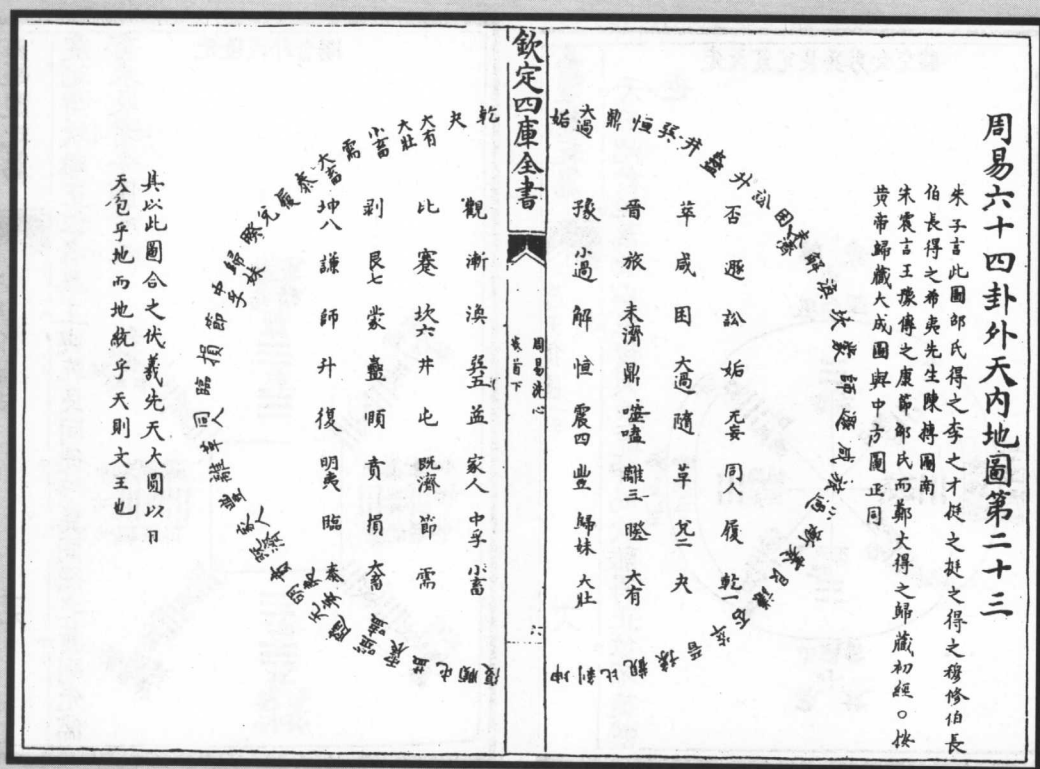 周易六十四卦外天内地圖第二十三
朱子言此圖邵氏得之李之才挺之挺之得之穆修伯長
伯長得之希夷先生陳摶圖南
朱震言王豫傳之康節邵氏而鄭夬得之歸藏初經○按
黄帝歸藏大成圖與中方圖正同
姤 大過 鼎 恒 巽 井 蠱 升 訟 困 未濟 解 渙 坎 蒙 師 遯 咸 旅 小過 漸 蹇 艮 謙 否 萃 晉 豫 觀 比 剥 坤
否 遯 訟 姤 无妄 同人 履 乾一
萃 咸 困 大過 隨 革 兌二 夬
晉 旅 未濟 鼎 噬嗑 離三 睽 大有
豫 小過 解 恒 震四 豐 歸妹 大壯
欽定四庫全書
周易洗心
卷首下
乾 夬 大有 大壯 小畜 需 大畜 泰 履 兌 睽 歸妹 中孚 節 損 臨 同人 革 離 豐 家人 既濟 賁 明夷 无妄 隨 噬嗑 震 益 屯 頤 復
觀 漸 渙 巽五 益 家人 中孚 小畜
比 蹇 坎六 井 屯 既濟 節 需
剥 艮七 蒙 蠱 頤 賁 損 大畜
坤八 謙 師 升 復 明夷 臨 泰
其以此圖合之伏羲先天大圓以
天包乎地而地統乎天則文王也